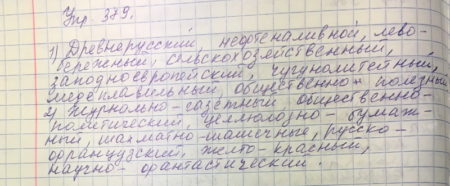 Упр 389.
1) Древнерусский, нефтеналивной, лево-
бережный, сельскохозяйственный,
западноевропейский, чугунолитейный,
медеплавильный, общественно полезный
2) Журнально-газетный общественно-
политический, целлюлозно-бумаж-
ный, шахматно-шашечные, русско-
французский, желто-красный,
научно-фантастический.